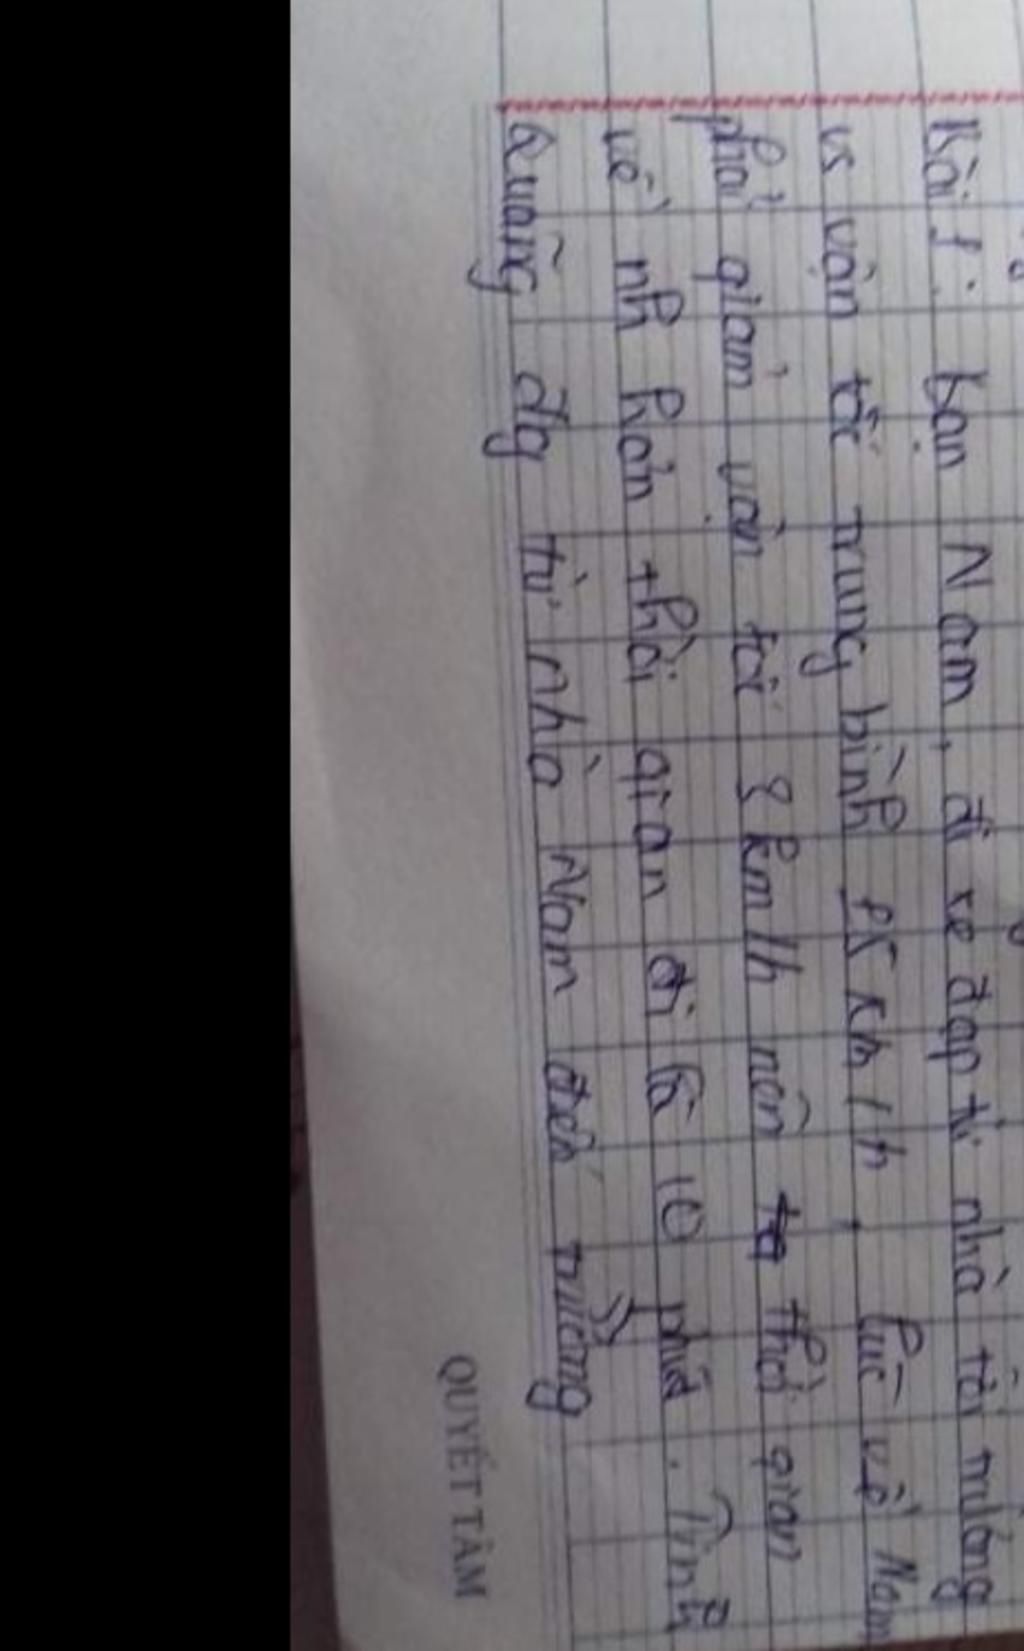 Bài 1: bạn Nam, đi xe đạp từ nhà tới trường
vs vận tốc trung bình 15 km/h, lúc về Nam
phải giảm vận tốc 8 km/h nên thời gian
về nh hơn thời gian đi là 10 phút. Tính
Quãng đg từ nhà Nam đến trường
QUYẾT TÂM